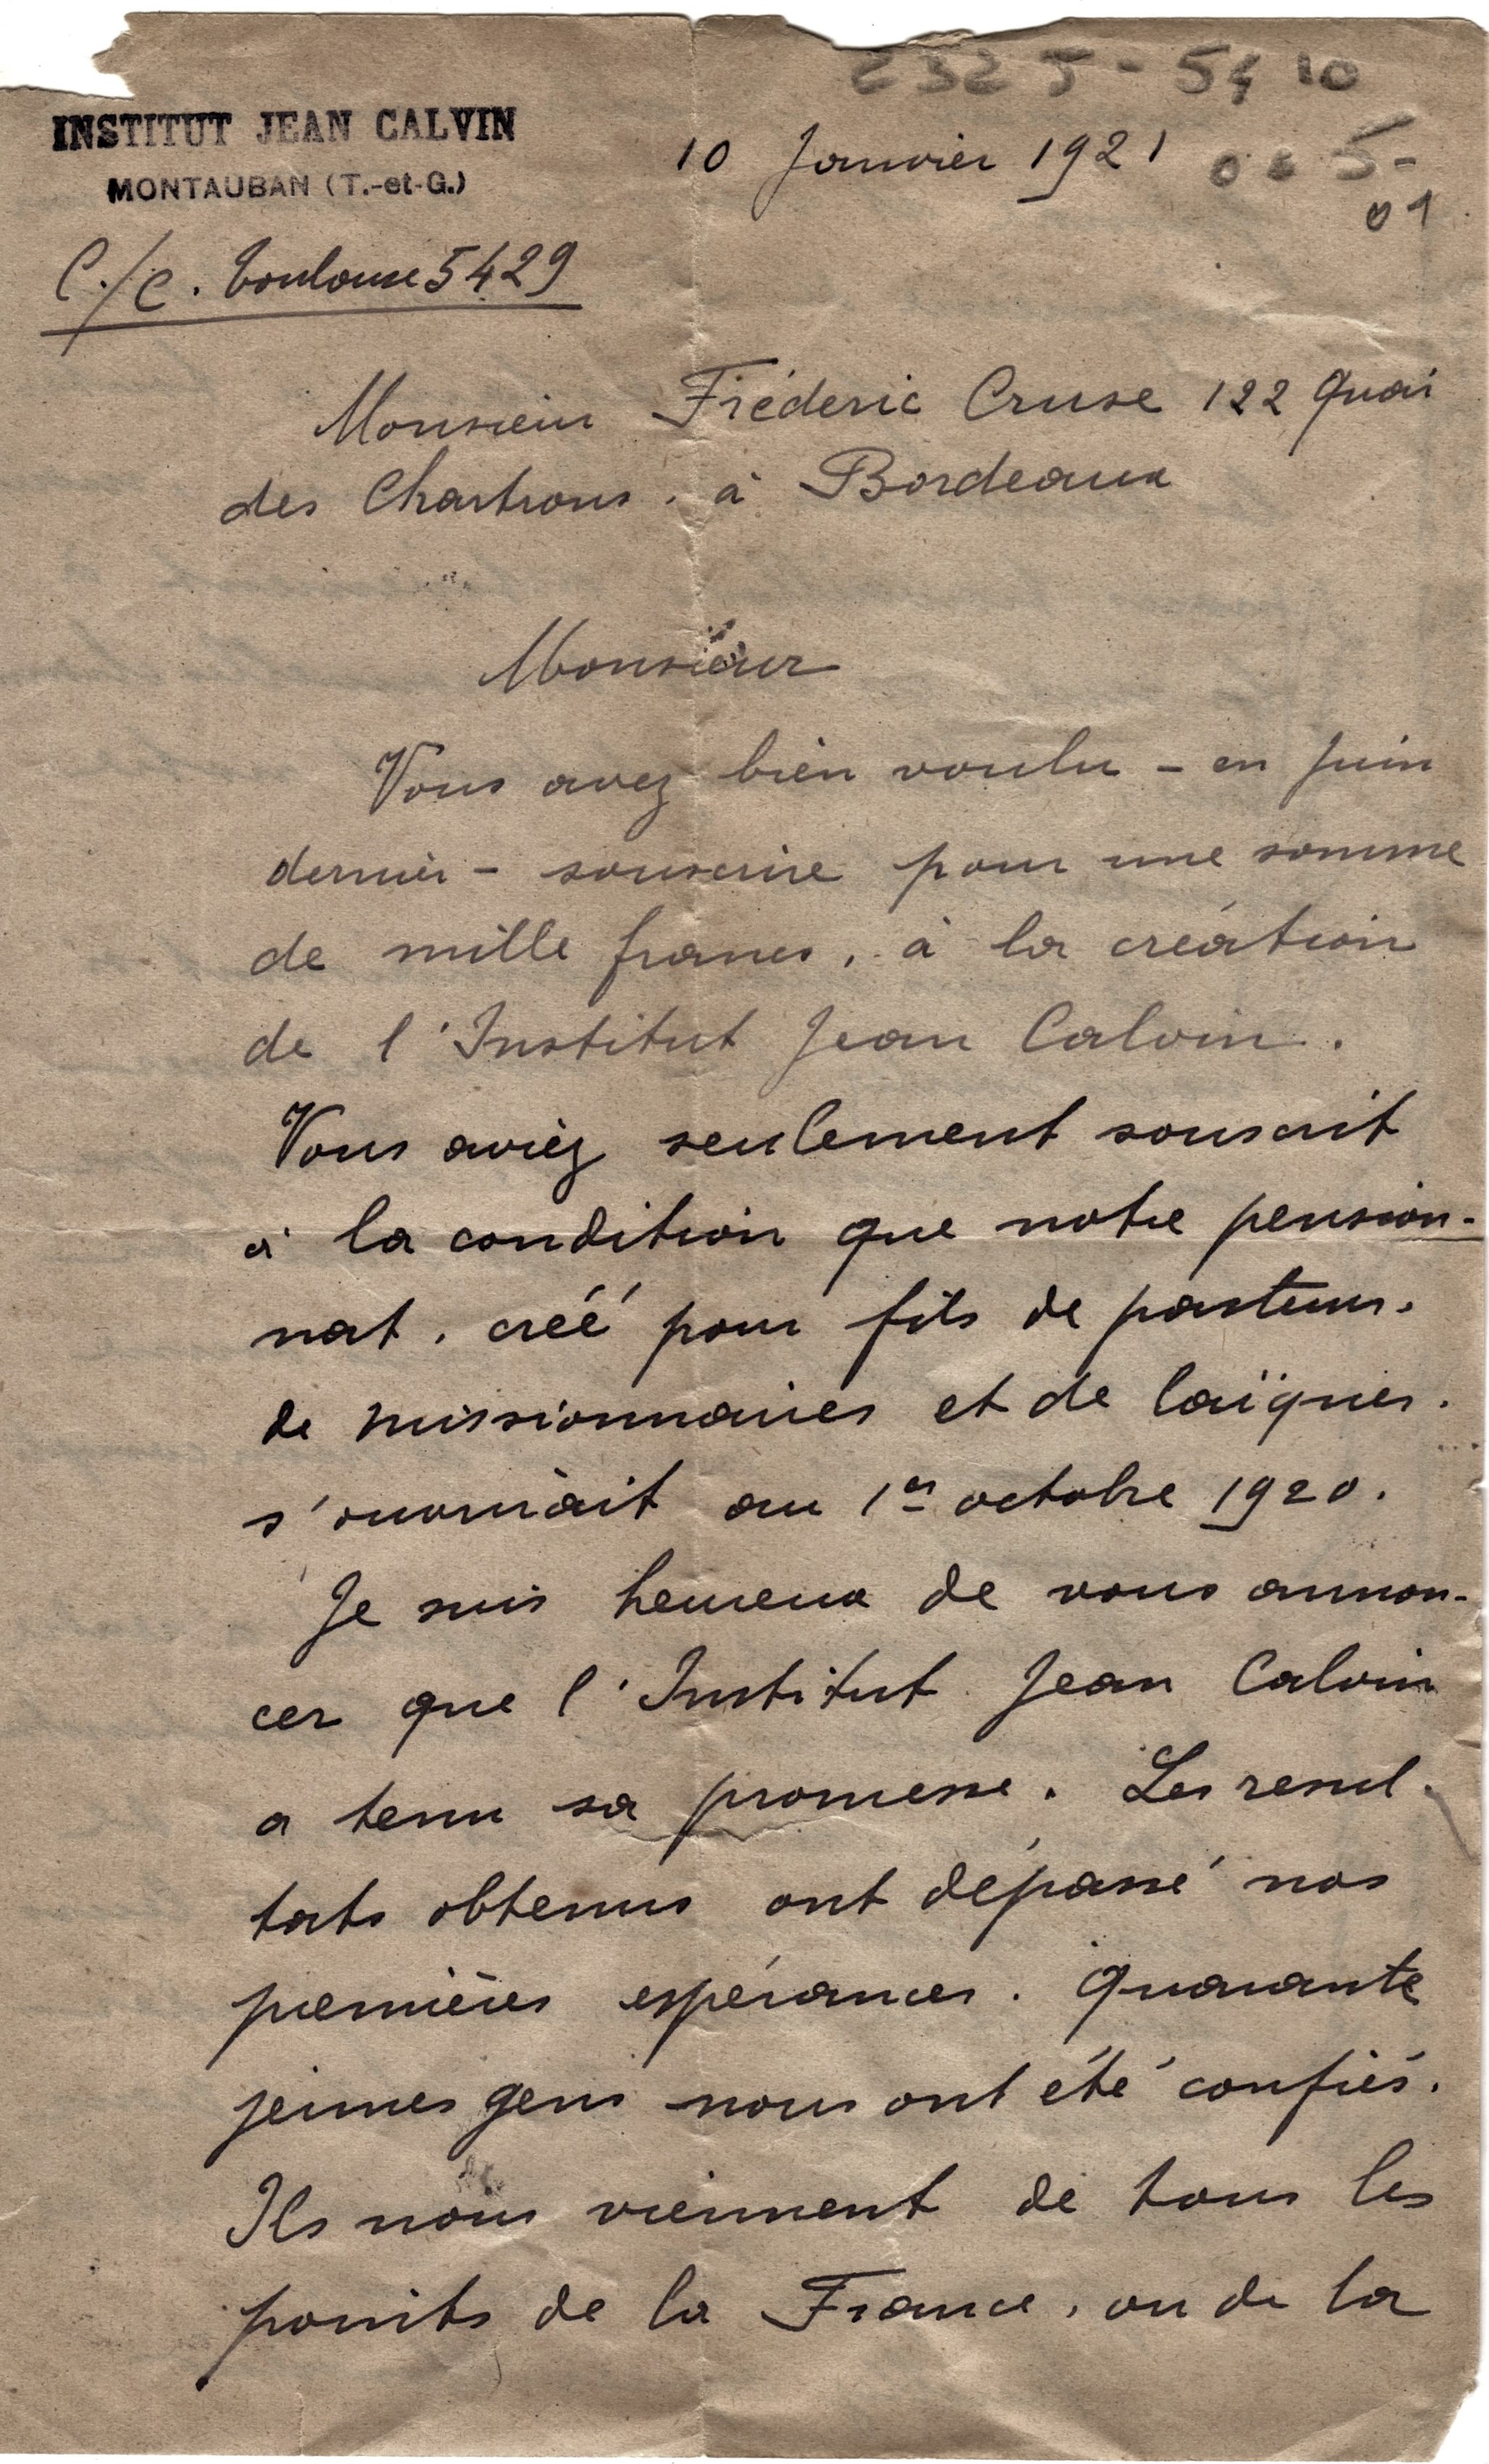 2325-5410
INSTITUT JEAN CALVIN
MONTAUBAN (T.-et-G.)
10 Janvier 1921
005-
01
C./C. Toulouse 5429
Monsieur Fréderic Cruse 122 Quai
des Chartrons, à Bordeaux
Monsieur
Vous avez bien voulu - en Juin
dernier - souscrire pour une somme
de mille francs, à la création
de l'Institut Jean Calvin.
Vous aviez seulement souscrit
à la condition que notre pension-
nat, créé pour fils de pasteurs,
de missionnaires et de laïques,
s'ouvrirait au 1er octobre 1920.
Je suis heureux de vous annon-
cer que l'Institut Jean Calvin
a tenu sa promesse. Les resul-
tats obtenus ont dépassé nos
premières espérances. Quarante
jeunes gens nous ont été confiés.
Ils nous viennent de tous les
points de la France, ou de la